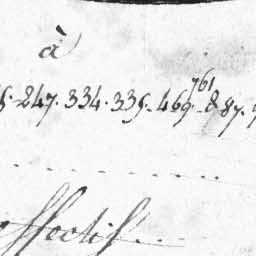 à
5. 247. 334. 335. 469. 761 & 87.
effectif